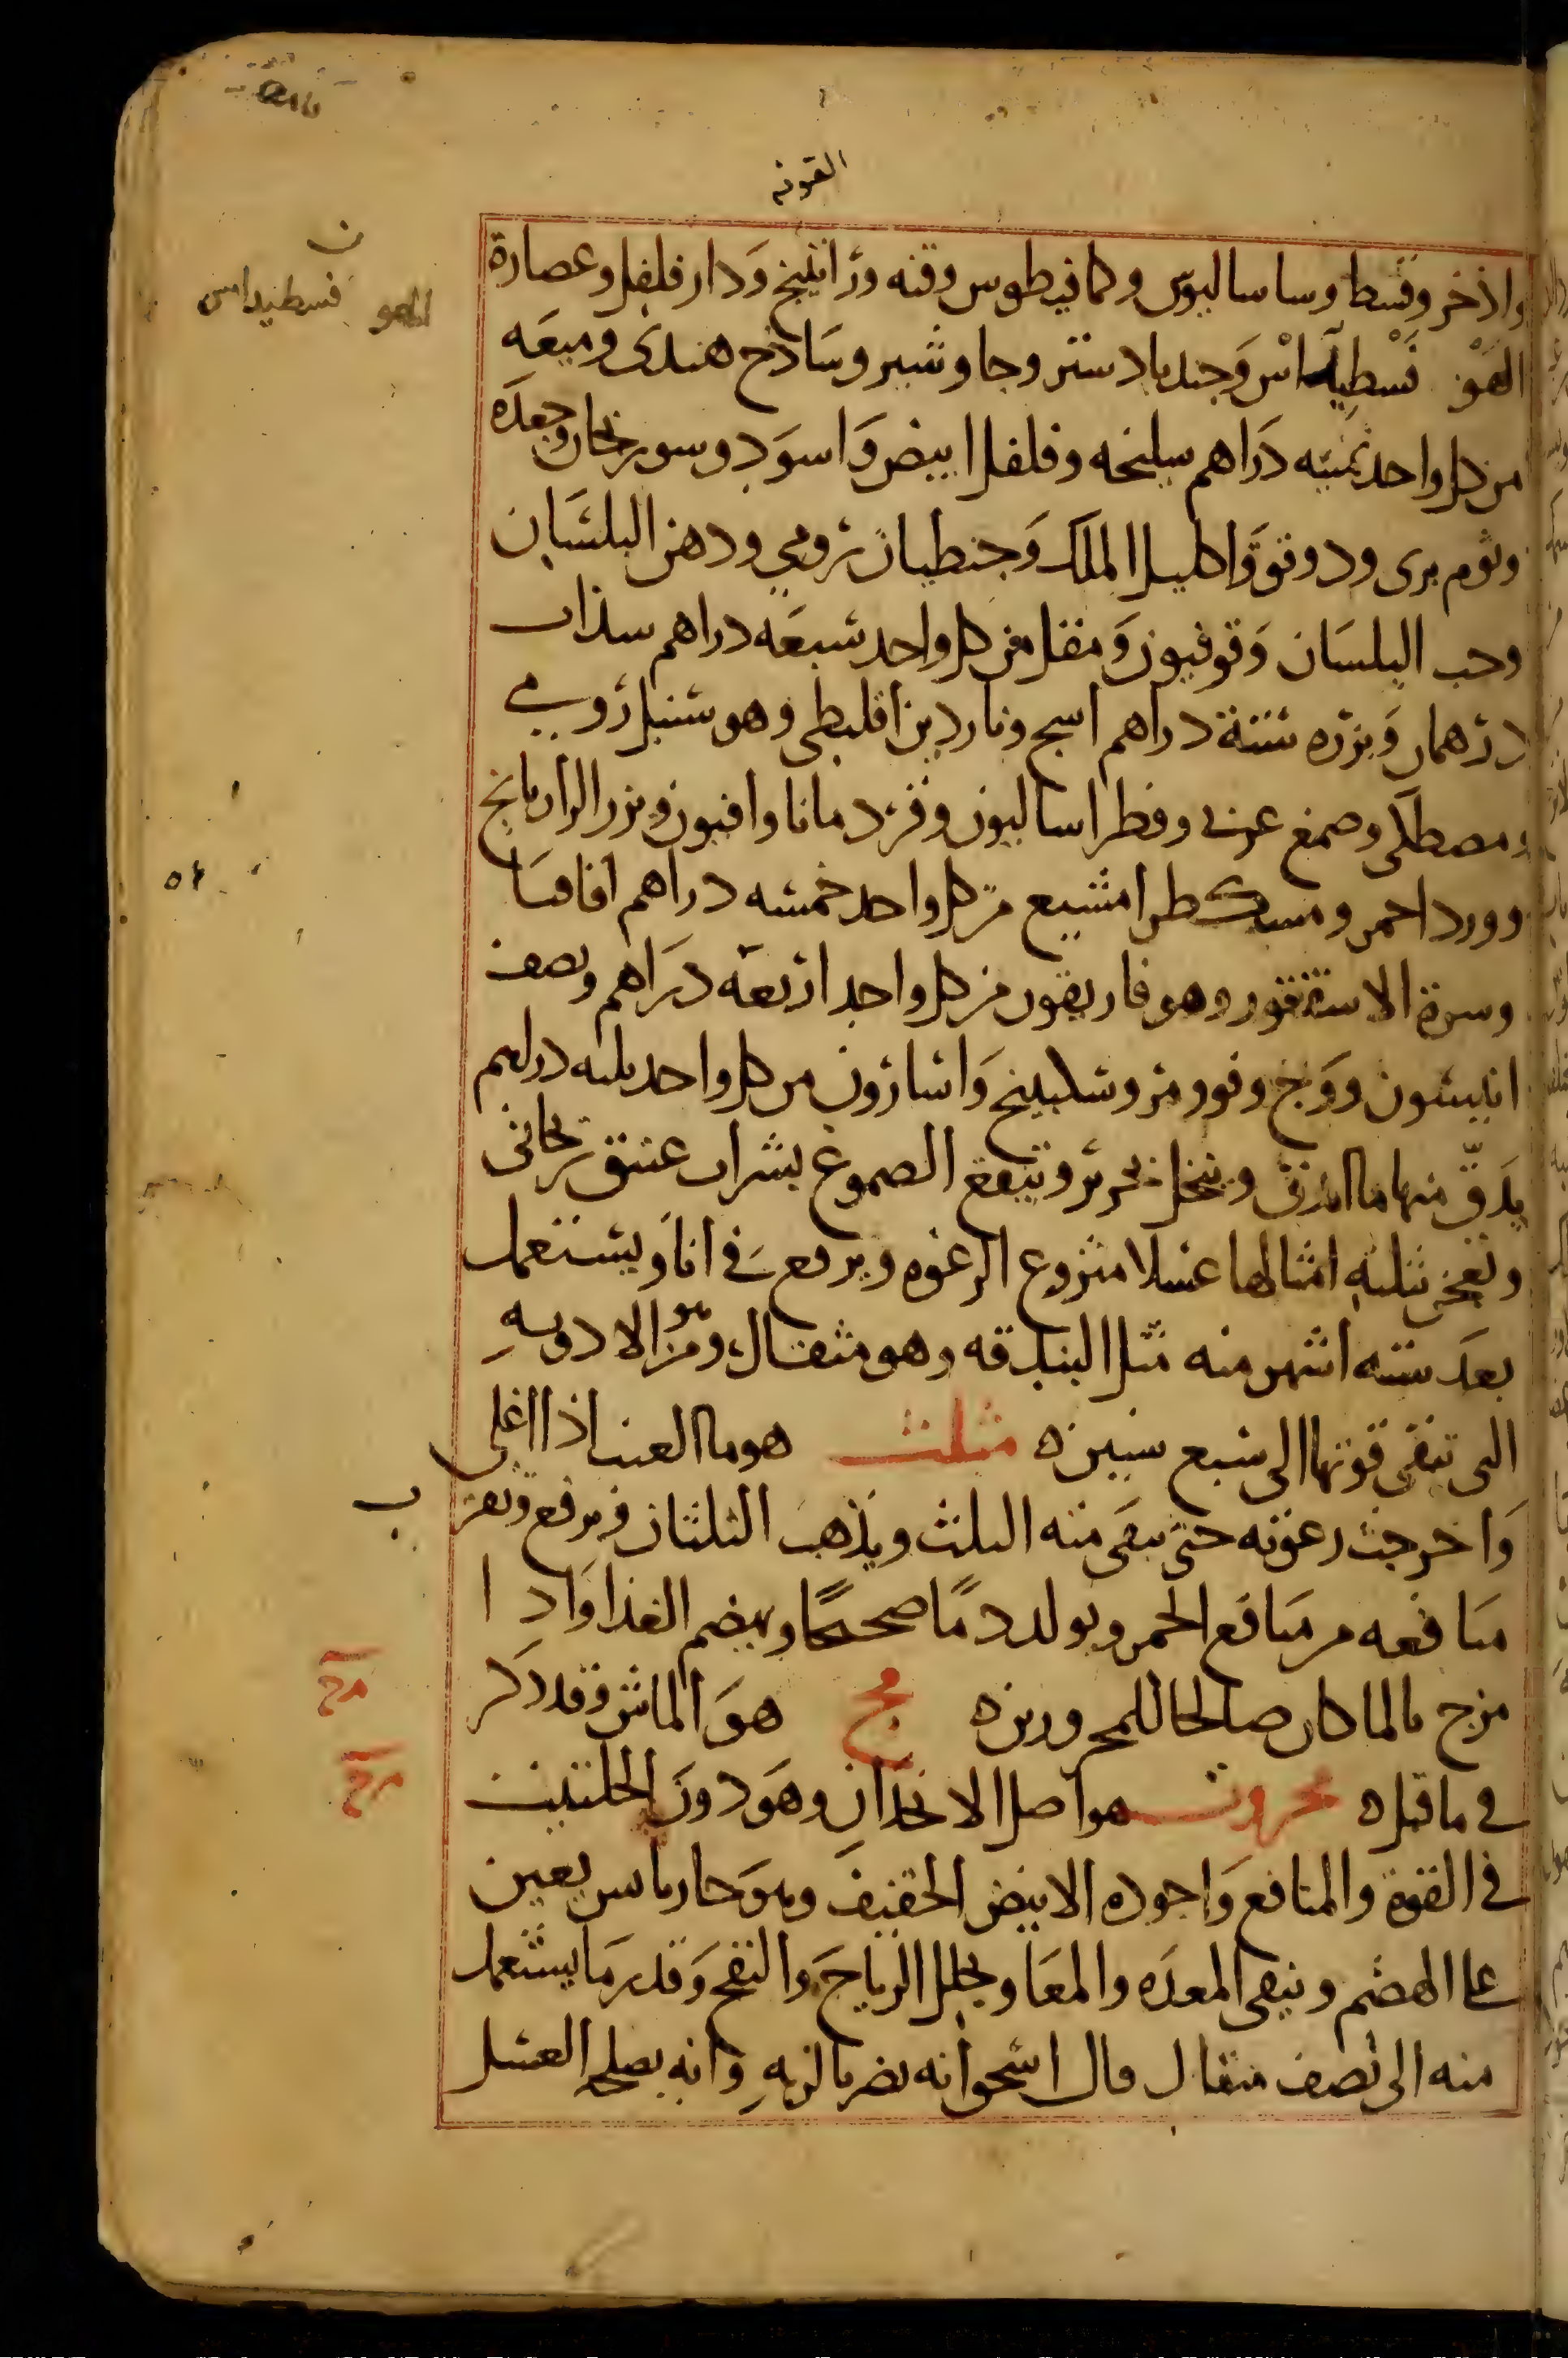 القوته
واذخر وقسط وساساليوس وكمافيطوس وقنه وراتينج ودار فلفل وعصارة
الهو فسطيداس وجندبادستر وجاوشير وساذج هندى وميعه
من كل واحد ثمنيه دراهم سليخه وفلفل ابيض واسود وسورنجان وجعده
وثوم برى ودوقو واكليل الملك وجنطيان رومي ودهن البلسان
وحب البلسان وقوفيون ومقل من كل واحد سبعه دراهم سذاب
درهمان وبزره ستة دراهم اسج وناردين اقليطى وهو سنبل رومي
ومصطكى وصمغ عربى وفطراساليون وقردمانا وافيون وبزر الرازيانج
وورد احمر ومسكطرامشيع من كل واحد خمسه دراهم اقاقيا
وسرة الاسقنقور وهوفاريقون من كل واحد اربعه دراهم ونصف
انيسون ووج وفو ومر وسكبينج واسارون من كل واحد ثلثه دراهم
يدق منها ما اندق وينخل بحرير وتنقع الصموغ بشراب عتيق ريحانى
وتعجن بثلثه امثالها عسلا منزوع الرغوه ويرفع في اناء ويستعمل
بعد سته اشهر منه مثل البندقه وهو مثقال وهو من الادويه
التى تبقى قوتها الى سبع سنين ه مثلث هو ما العنب اذا اغلى
واخرجت رغوته حتى يبقى منه الثلث ويذهب الثلثان ويرفع وتقرب
منافعه من منافع الخمر ويولد دما صحيحا ويهضم الغذا واذا
مزج بالما كان صالحا للمحرورين ه مج هو الماش وقد ذكر
في ما قبل ه محروث هو اصل الانجدان وهو دون الحلتيت
في القوة والمنافع واجوده الابيض الخفيف وهو حار يابس يعين
على الهضم وينقى المعده والمعا ويحلل الرياح والنفخ وقدر ما يستعمل
منه الى نصف مثقال قال اسحق انه يضر بالريه وانه يصلحه العسل
ن
الهو فسطيداس
مج
مرح